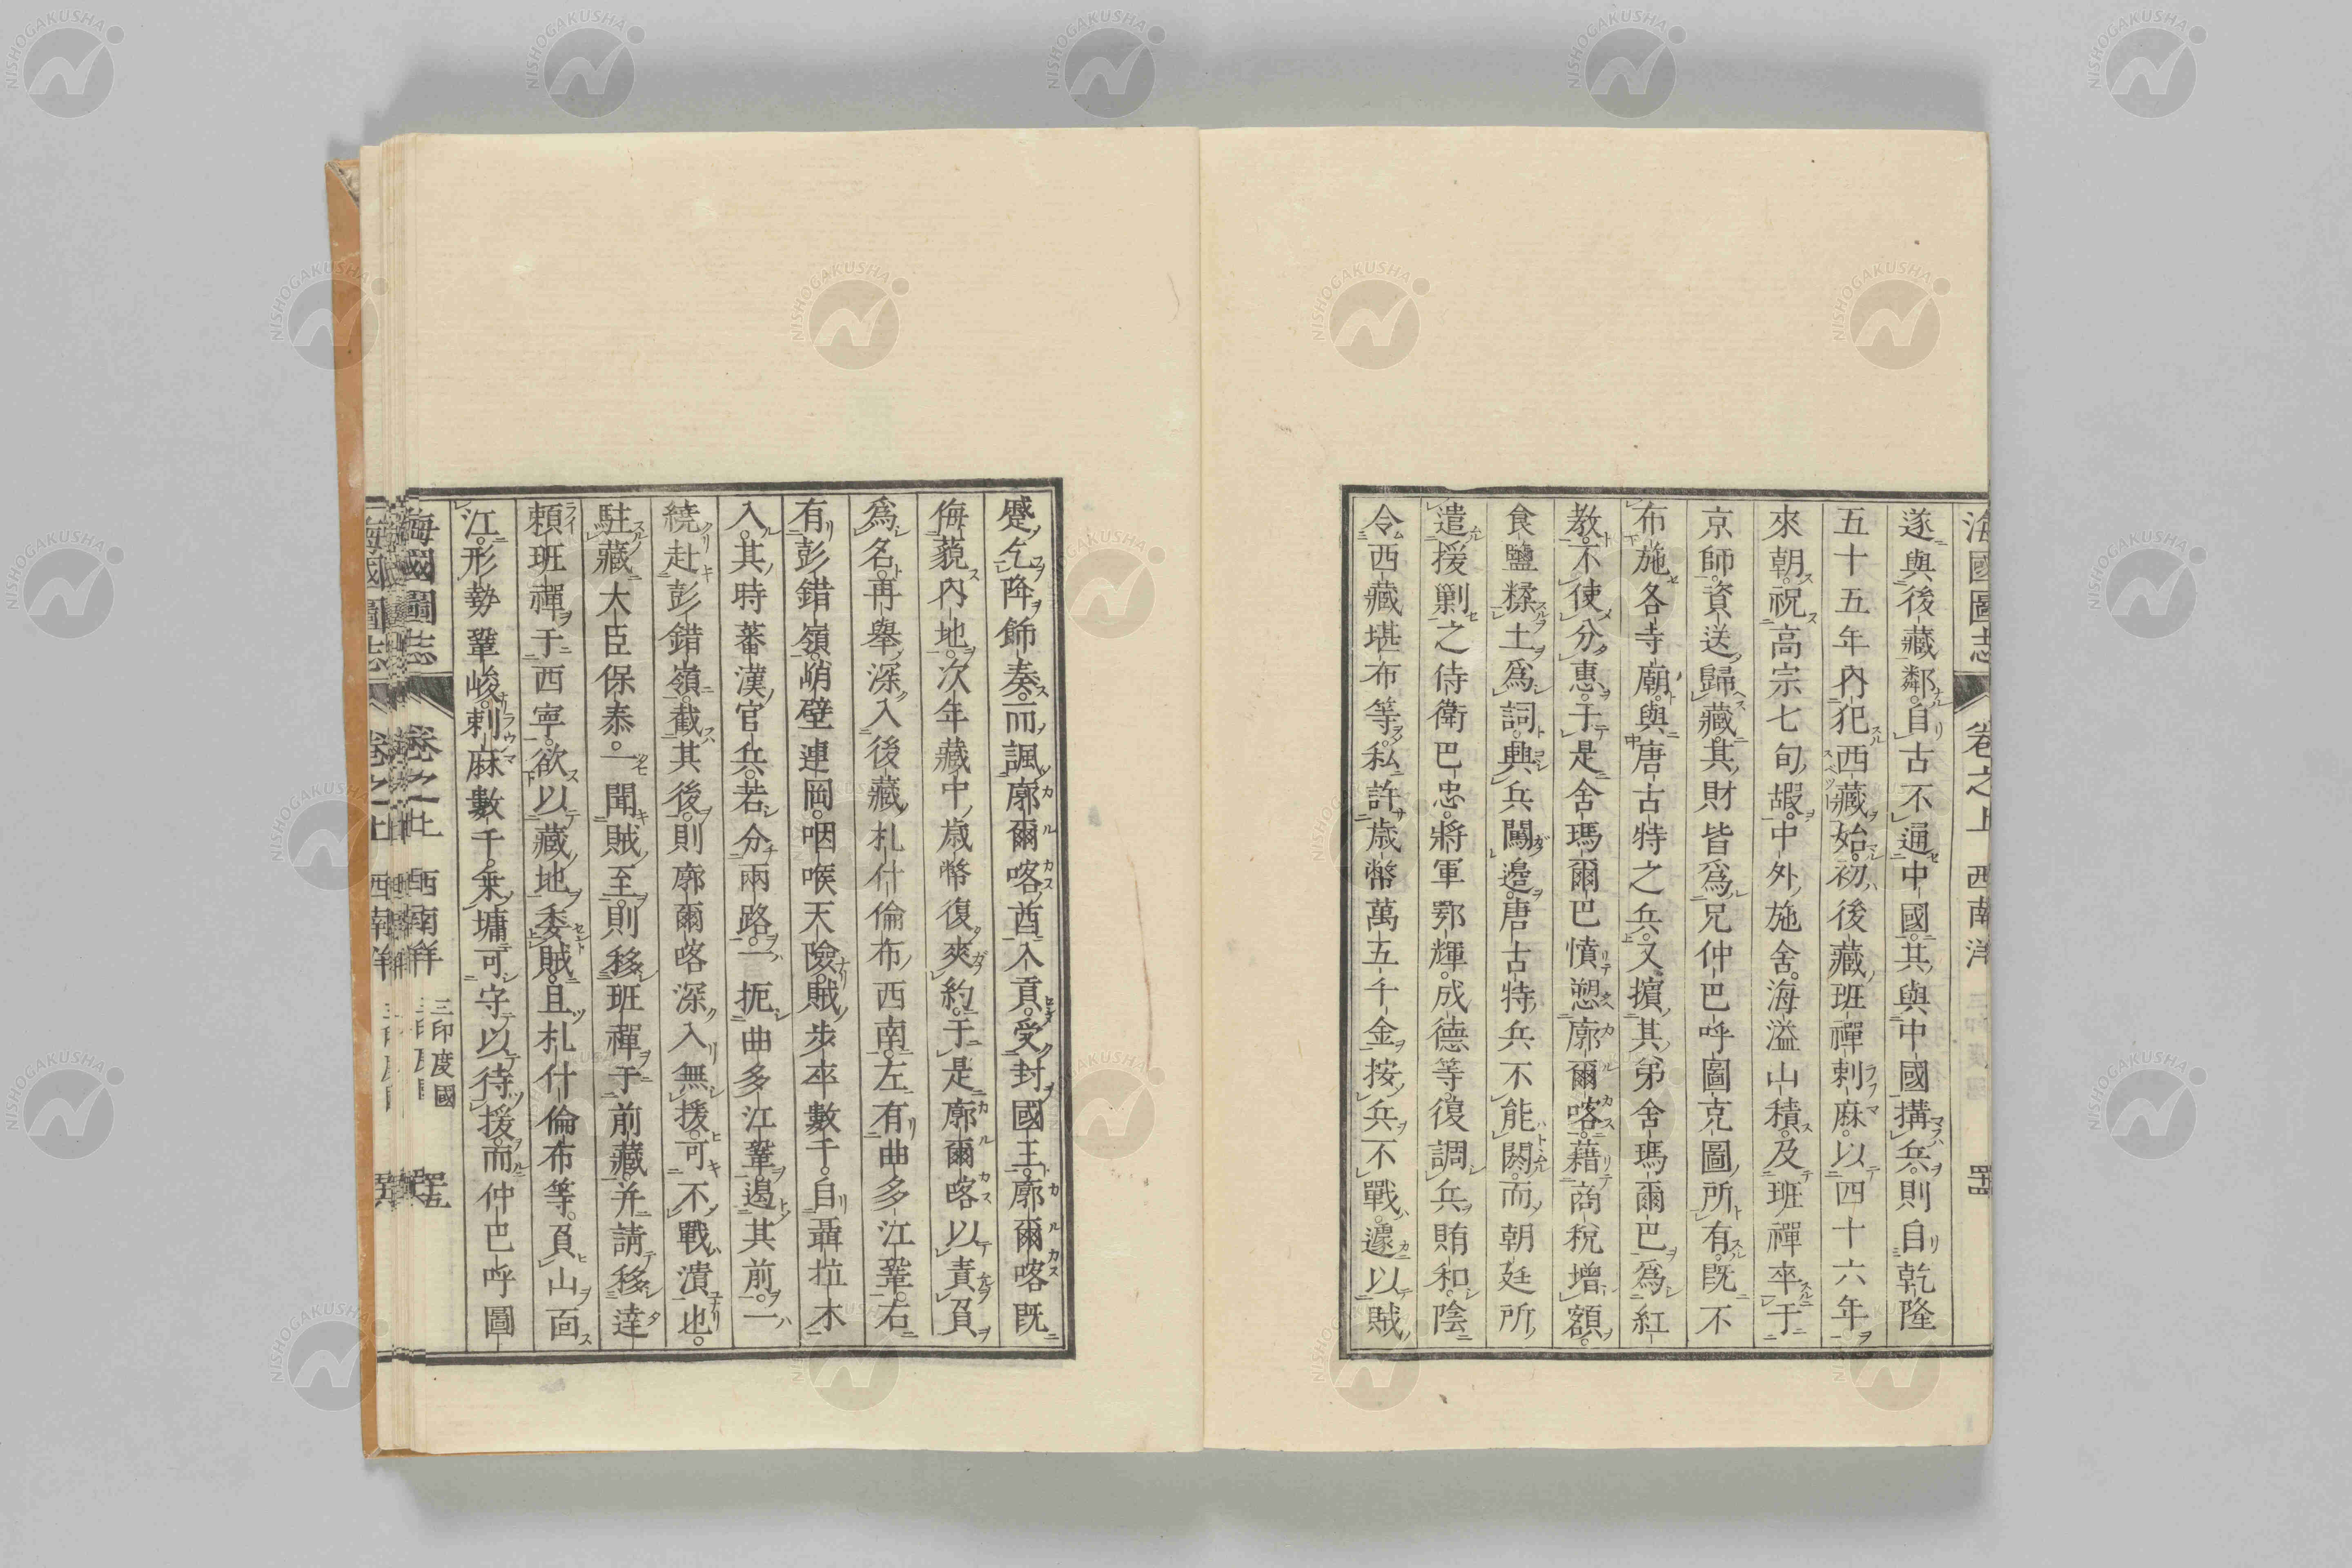 海國圖志 卷之上 西南洋
遂與後藏鄰。自古不通中國。其與中國搆兵。則自乾隆
五十五年內犯西藏始。初後藏班禪剌麻。以四十六年
來朝。祝高宗七旬嘏。中外施舍。海溢山積。及班禪卒于
京師。資送歸藏。其財皆爲兄仲巴呼圖克圖所有。既不
布施各寺廟與唐古特之兵。又擯其弟舍瑪爾巴爲紅
教。不使分惠。于是舍瑪爾巴憤愬廓爾喀。藉商稅增額。
食鹽糅土爲詞。興兵闖邊。唐古特兵不能閼。而朝廷所
遣援剿之侍衛巴忠。將軍鄂輝。成德等。復調兵賄和。陰
令西藏堪布等。私許歲幣萬五千金。按兵不戰。遽以賊
蹙乞降飾奏。而諷廓爾喀酋入貢。受封國王。廓爾喀既
侮藐內地。次年藏中歲幣復爽約。于是廓爾喀以責負
爲名。再舉深入後藏。札什倫布西南。左有曲多江鞏。右
有彭錯嶺。峭壁連岡。咽喉天險。賊步卒數千。自聶拉木
入。其時蕃漢官兵。若分兩路。一扼曲多江鞏。遏其前。一
繞赴彭錯嶺。截其後。則廓爾喀深入無援。可不戰潰也。
駐藏大臣保泰。一聞賊至。則移班禪于前藏。并請移達
賴班禪于西寧。欲以藏地委賊。且札什倫布等。負山面
江。形勢鞏峻。剌麻數千。乘墉可守以待援。而仲巴呼圖
海國圖志 卷之上 西南洋 三印度國